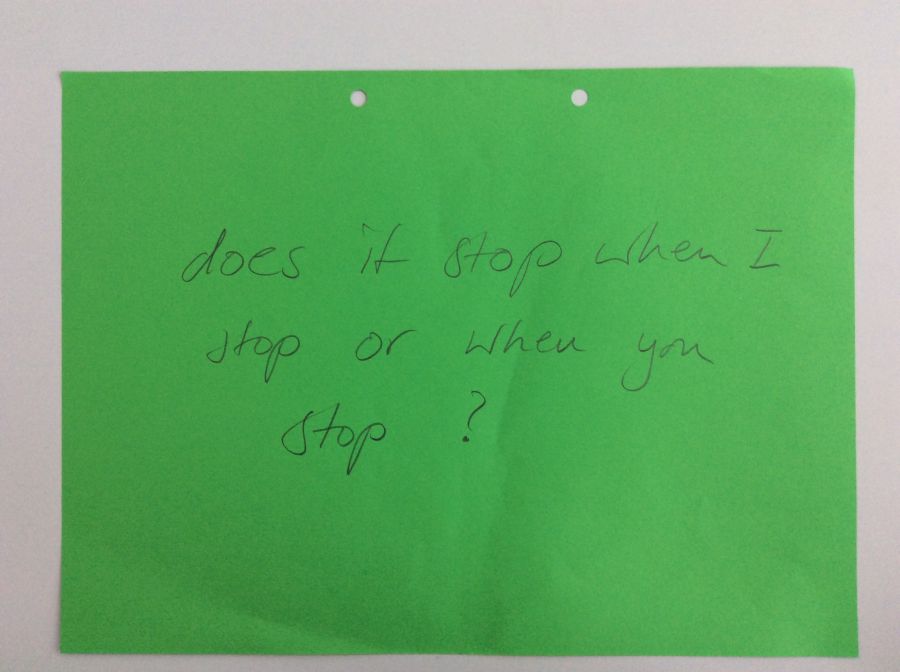 does it stop when I
stop or when you
stop ?